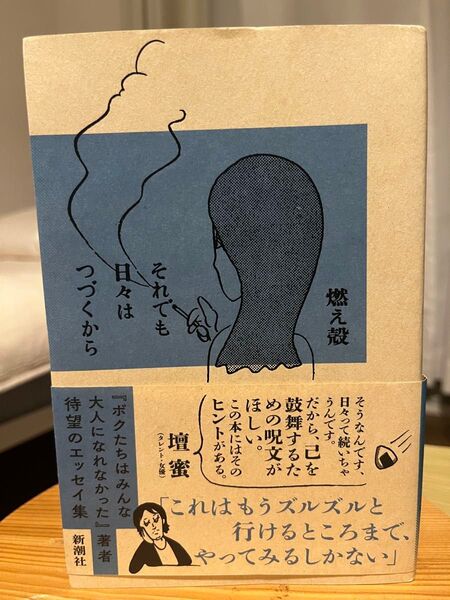 それでも
日々は
つづくから
燃え殻
そうなんです、
日々って続いちゃ
うんです。
だから、己を
鼓舞するた
めの呪文が
ほしい。
この本にはその
ヒントがある。
壇蜜
（タレント・女優）
「これはもうズルズルと
行けるところまで、
やってみるしかない」
『ボクたちはみんな
大人になれなかった』著者
待望のエッセイ集
新潮社